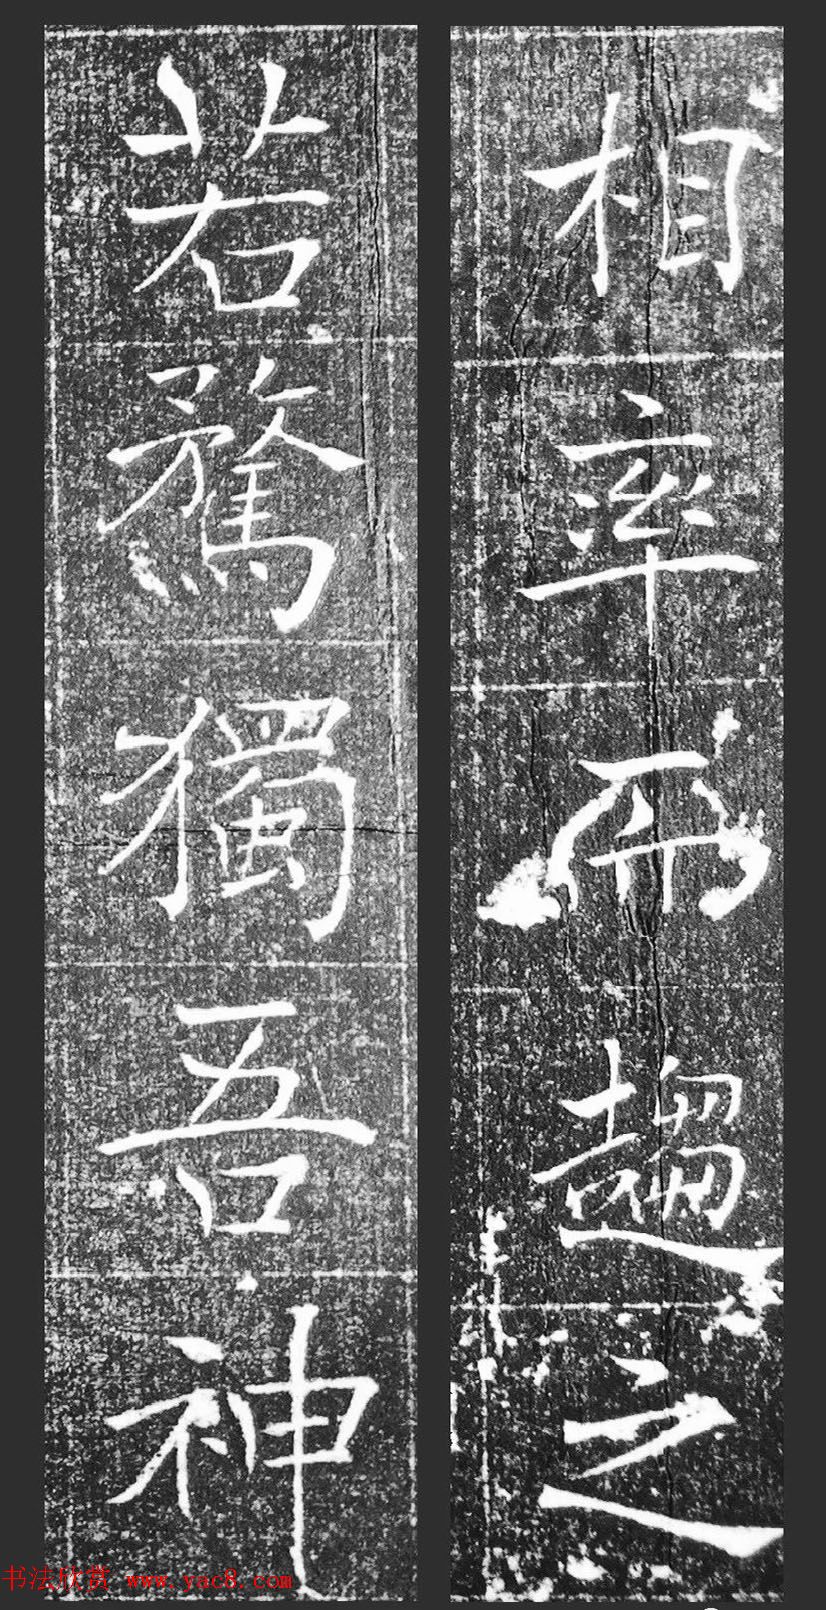 相率而趨之
若騖獨吾神
书法欣赏 www.yac8.com